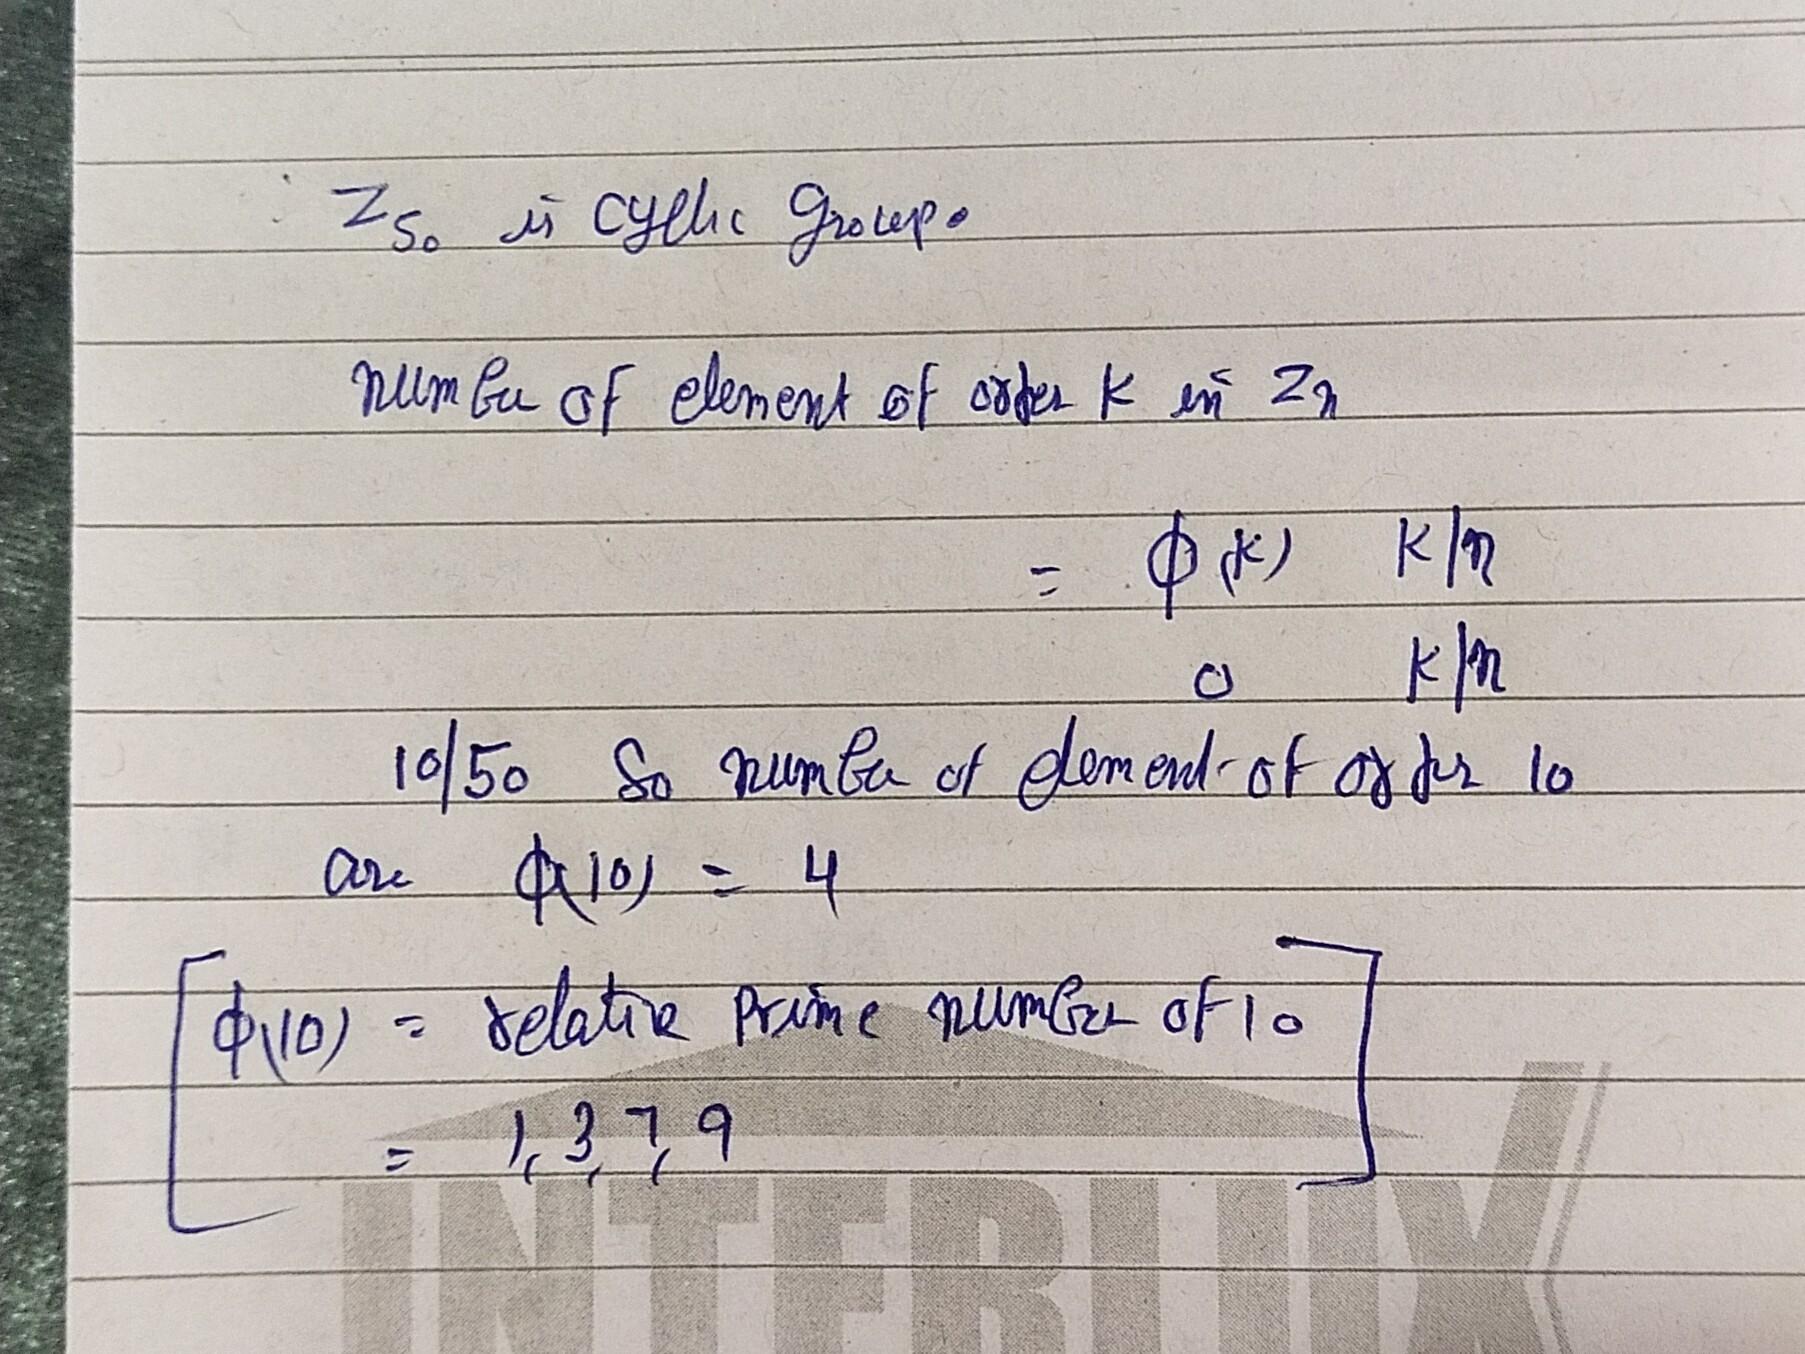 Z₅₀ is cyclic group.
number of element of order K in Zₙ
= ϕ(K) K/n
0 K/n
10/50 So number of element of order 10
are ϕ(10) = 4
ϕ(10) = relative prime number of 10
= 1, 3, 7, 9
INTERLUX